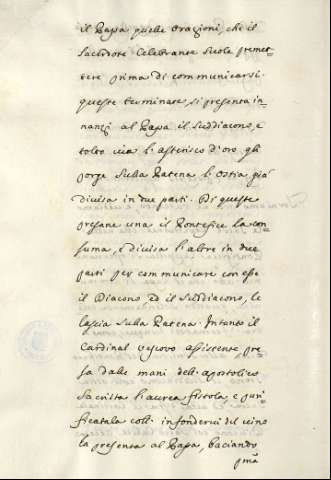 il Papa quelle Orazioni, che il
Sacerdote Celebrante suole premet=
tere prima di communicarsi.
queste terminate, si presenta in=
nanzi al Papa il Suddiacono, e
tolto via l'asterisco d'oro gli
porge sulla Patena l'Ostia già
divisa in due parti. Di queste
presane una il Pontefice la con=
suma, e divisa l'altra in due
parti per communicare con esse
il Diacono ed il Suddiacono, le
lascia sulla Patena. Intanto il
Cardinal Vescovo assistente pre=
sa dalle mani dell'apostolico
Sacrista l'aurea fistola, e puri=
ficatala coll'infondervi del vino
la presenta al Papa, baciando
pma